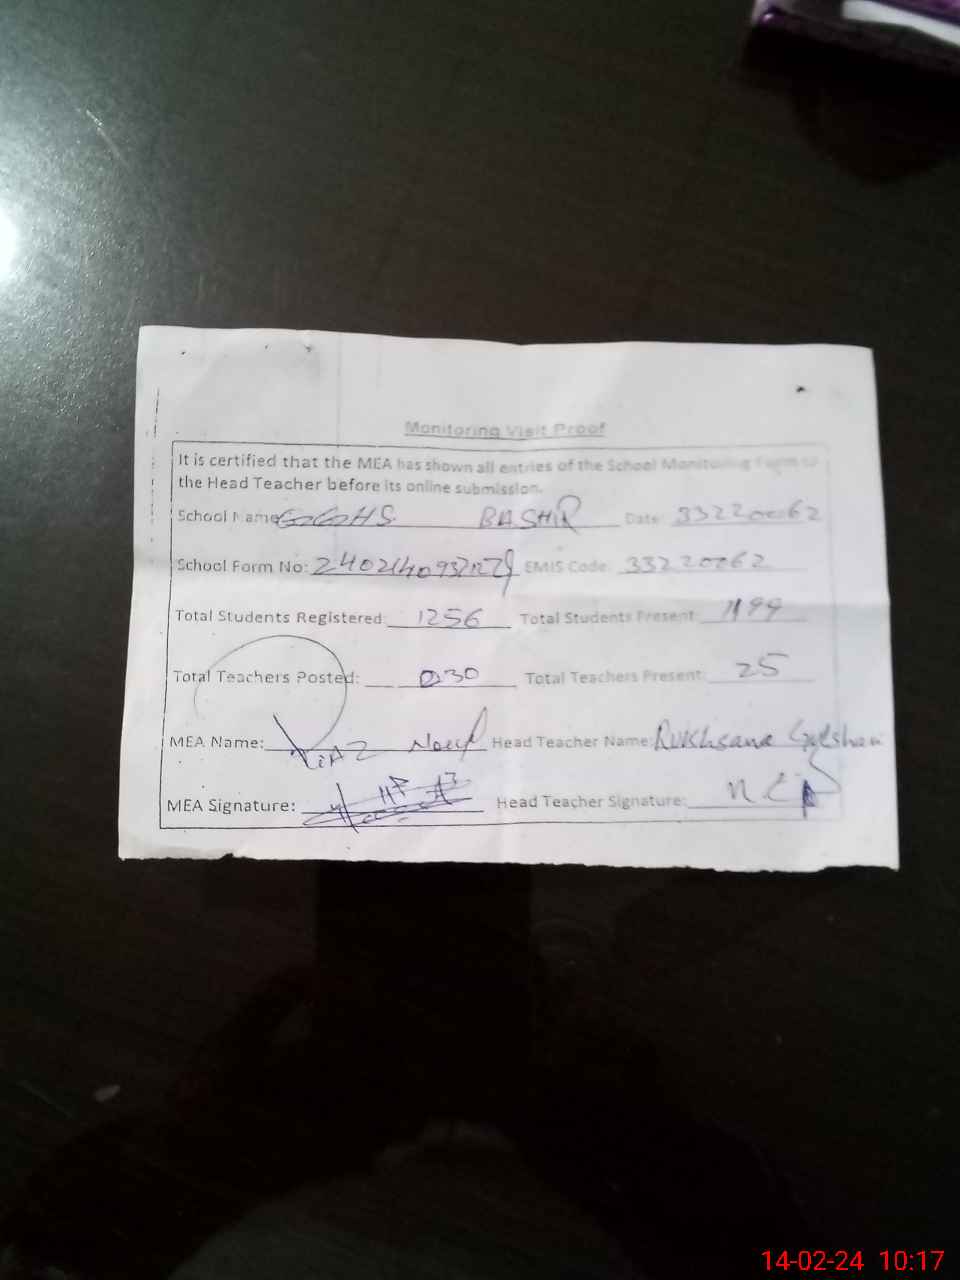 Monitoring Visit Proof
It is certified that the MEA has shown all entries of the School Monitoring Form to
the Head Teacher before its online submission.
School Name GGHS BASHIR Date: 33220062
School Form No: EMIS Code: 33220062
Total Students Registered: 1256 Total Students Present: 1199
Total Teachers Posted: 30 Total Teachers Present: 25
MEA Name: Head Teacher Name: Rukhsana Gulshan
MEA Signature: Head Teacher Signature:
14-02-24 10:17